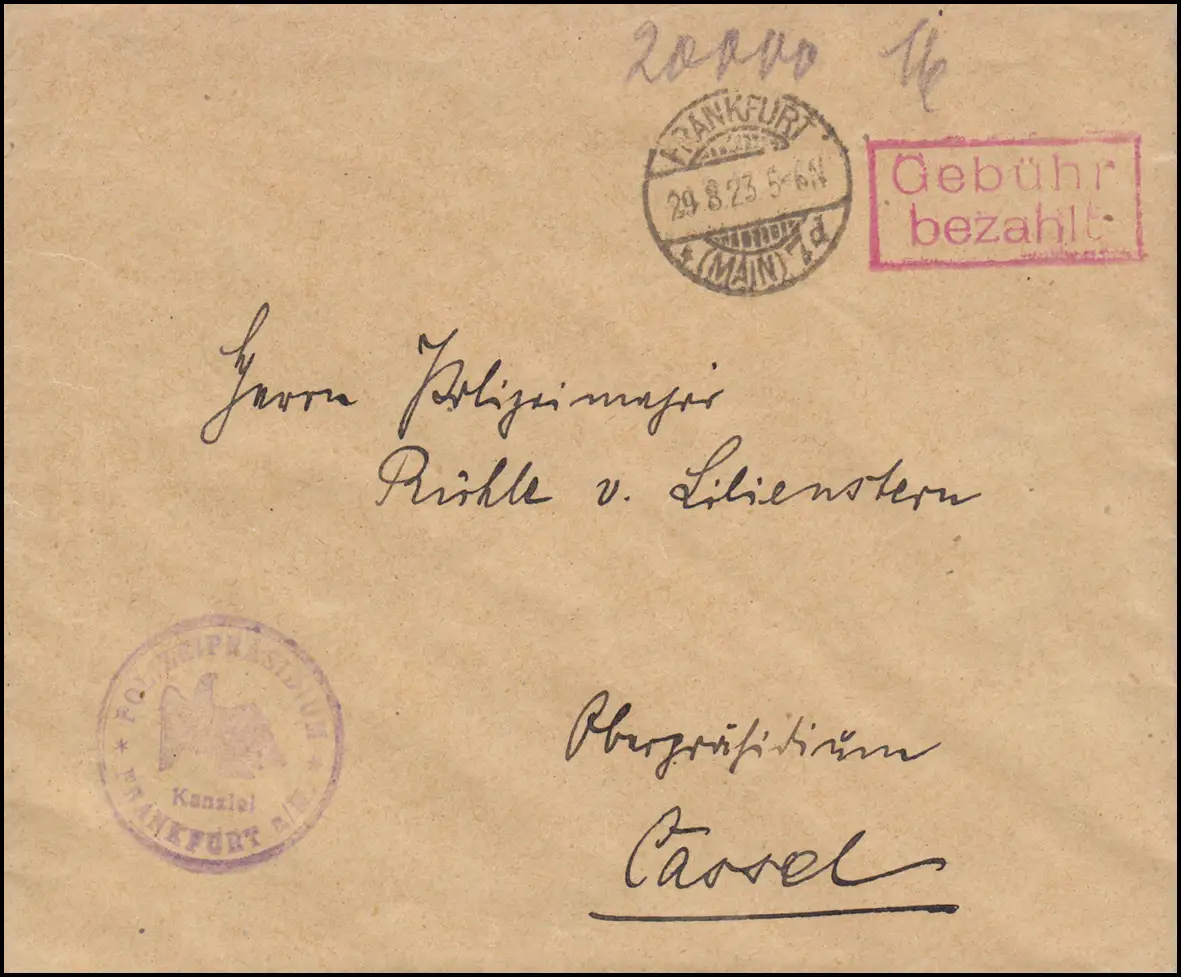 20000 M
FRANKFURT
29.8.23 5-6N
* (MAIN) 7d
Gebühr
bezahlt
Herrn Polizeimajor
Rühle v. Lilienstern
* POLIZEIPRÄSIDIUM *
Kanzlei
FRANKFURT a/M.
Oberpräsidium
Cassel